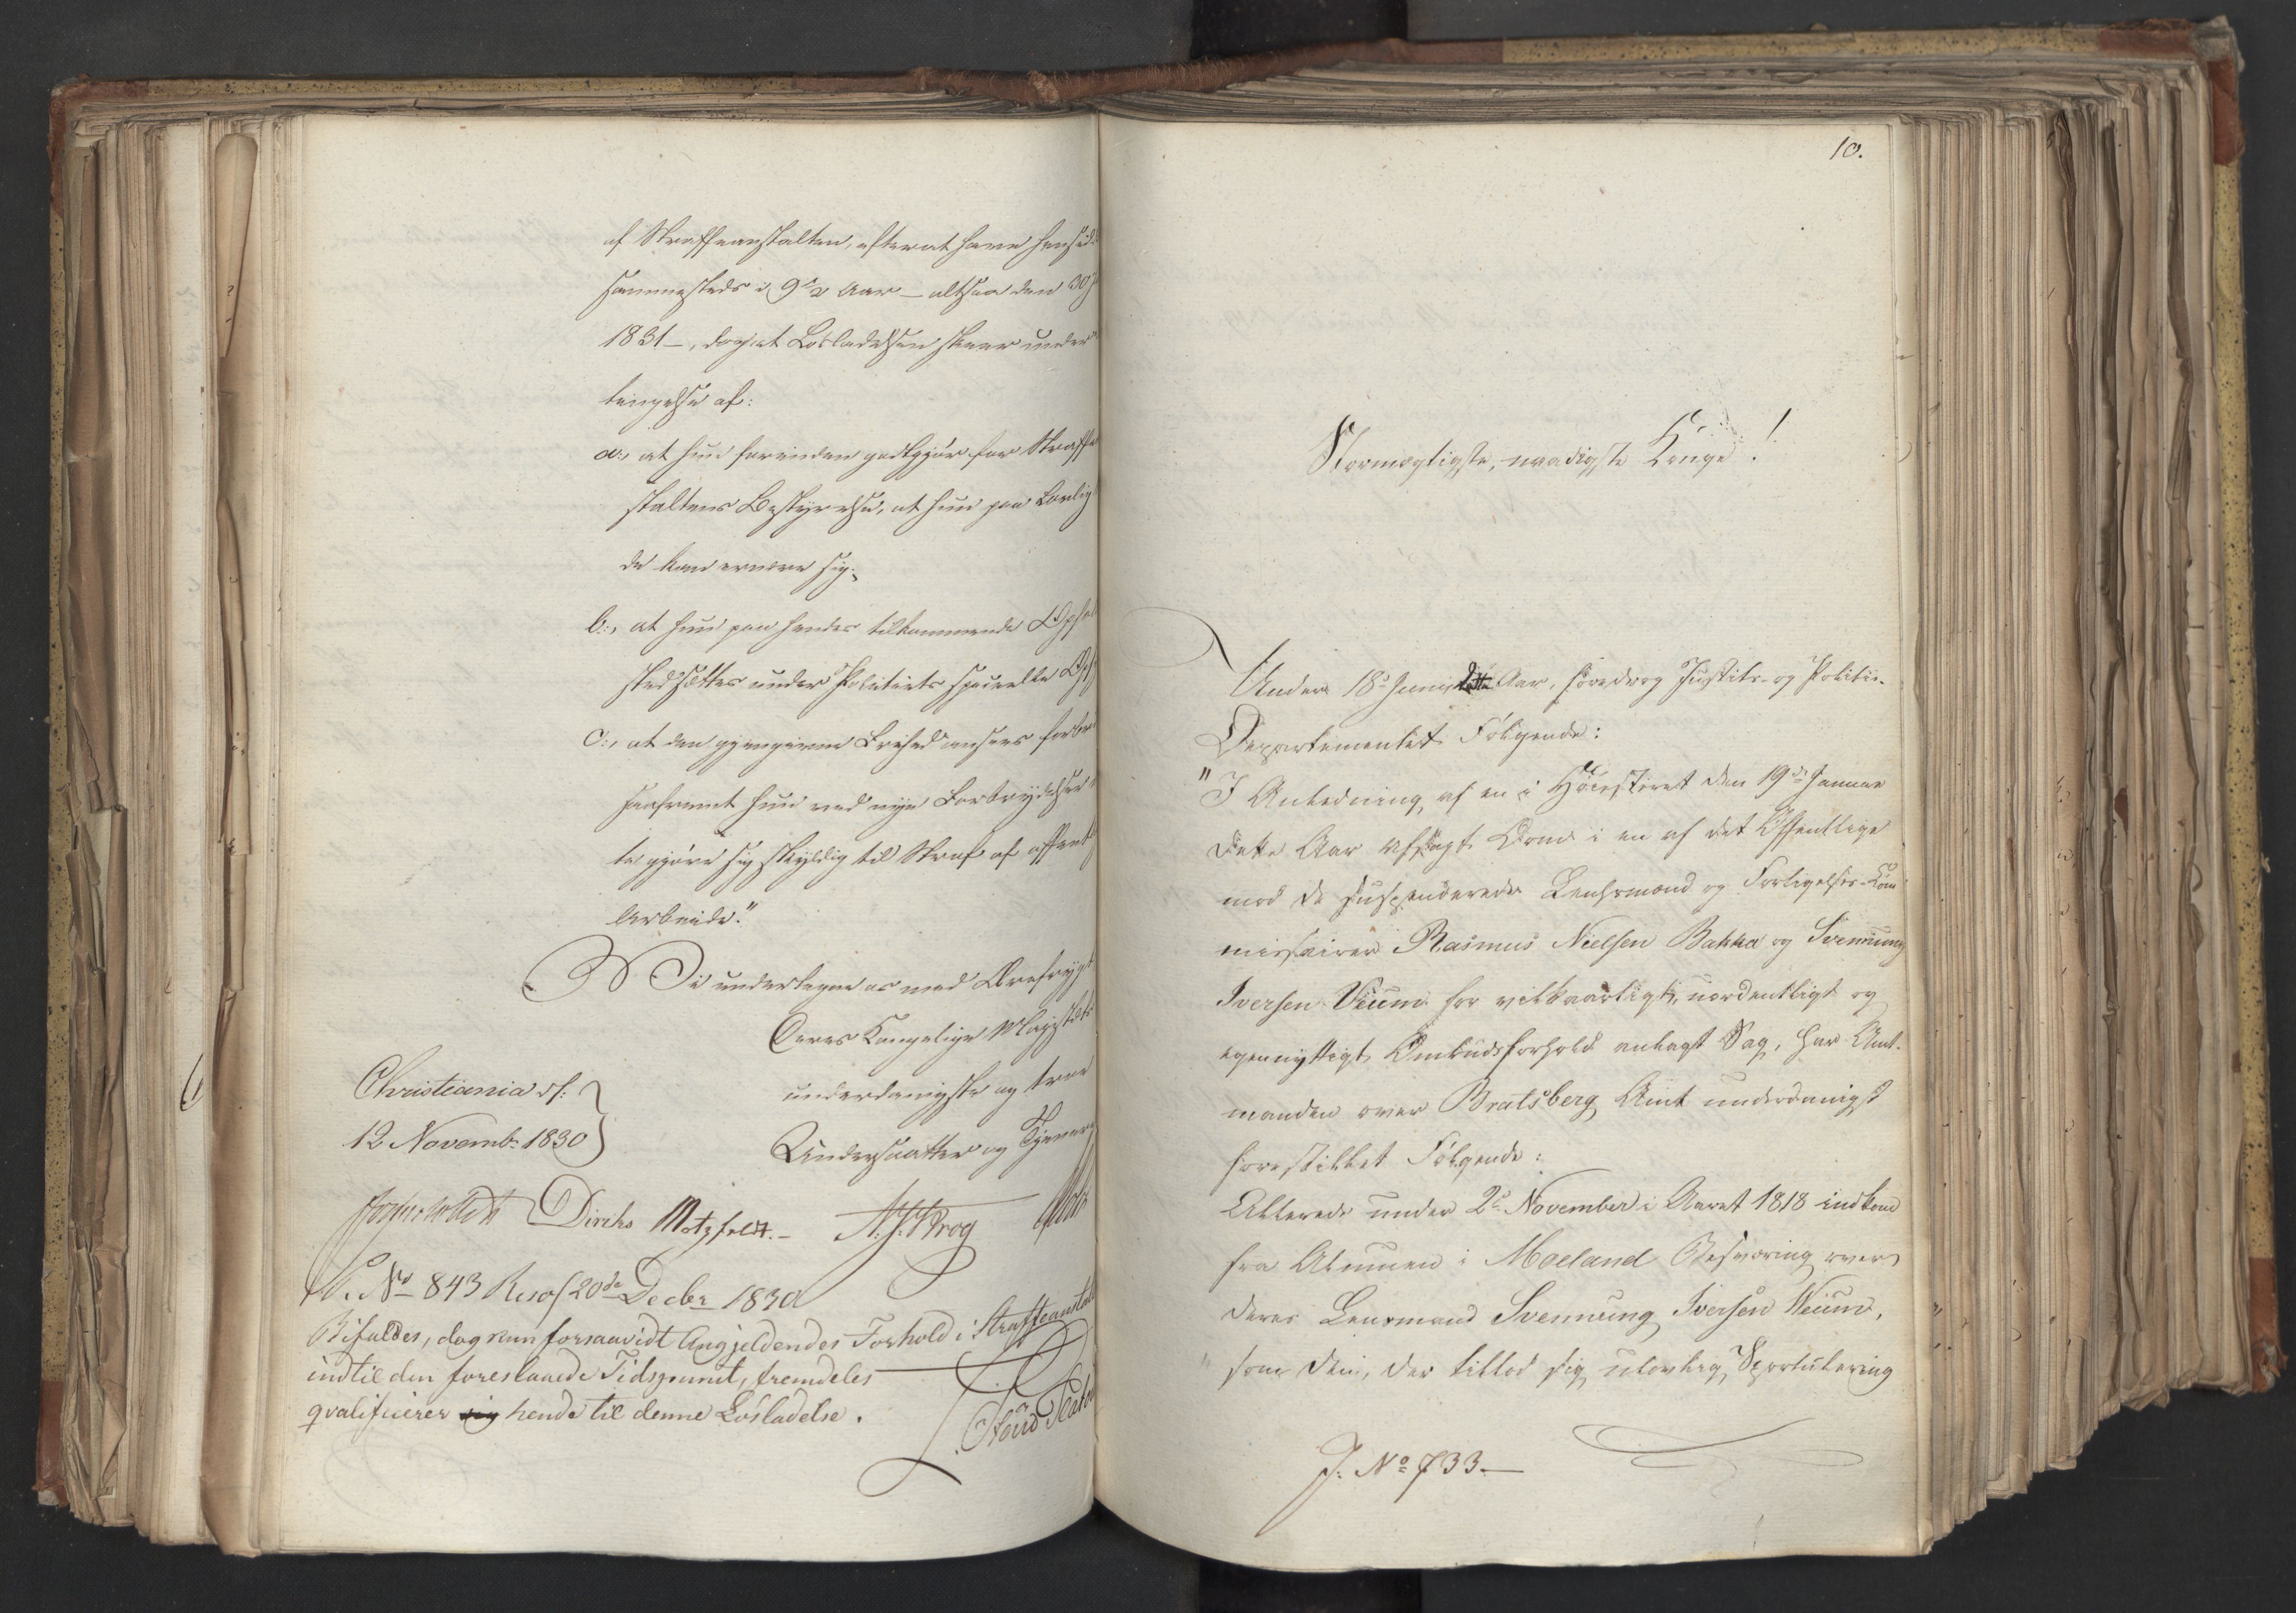 af Straffeanstalten, efterat have hensid
sammesteds i 9 1/2 Aar – altsaa den 30
1831 –, dog at Løsladelsen skeer under
tingelse af:
a:, at hun forinden godtgjør for Straffe
staltens Bestyrelse, at hun paa Lovlig
de kan ernære sig.
b:, at hun paa hendes tilkommende Opho
sted sættes under Politiets specielle Ops
c:, at den gjengivne Frihed ansees forbr
saafremt hun ved nye Forbrydelser
te gjøre sig skyldig til Straf af offent
Arbeide."
Vi undertegne os med Ærefrygt
Deres Kongelige Majestæts
underdanigste og troe
Undersaatter og Tjenere
Christiania d:
12 Novemb: 1830
Diriks Motzfeldt. – Krog
No 843 Resol 20de Decbr 1830
Bifaldes, dog kun forsaavidt Angjeldendes Forhold i Straffeanstalt
indtil den foreslaaede Tidspunct, fremdeles
qvalificerer sig hende til denne Løsladelse.
10.
Stormægtigste, naadigste Konge!
Under 18de Juni dette Aar, foredrog Justits- og Politie-
Departementet Følgende:
"I Anledning af en i Høiesteret den 19de Januar
dette Aar afsagt Dom i en af det Offentlige
mod de suspenderede Lensmænd og Forligelses-Com
missairer Rasmus Nielsen Bakka og Svennung
Iversen Veum for vilkaarligt, uordentligt og
egennyttigt Embudsforhold anlagt Sag, har Amt-
manden over Bratsberg Amt underdanigst
forestillet Følgende:
Allerede under 2de November i Aaret 1818 indkom
fra Almuen i Moeland Besværing over
deres Lensmand Svennung Iversen Veum,
som den, der tillod sig ulovlig Sportulering
J: No 733. –